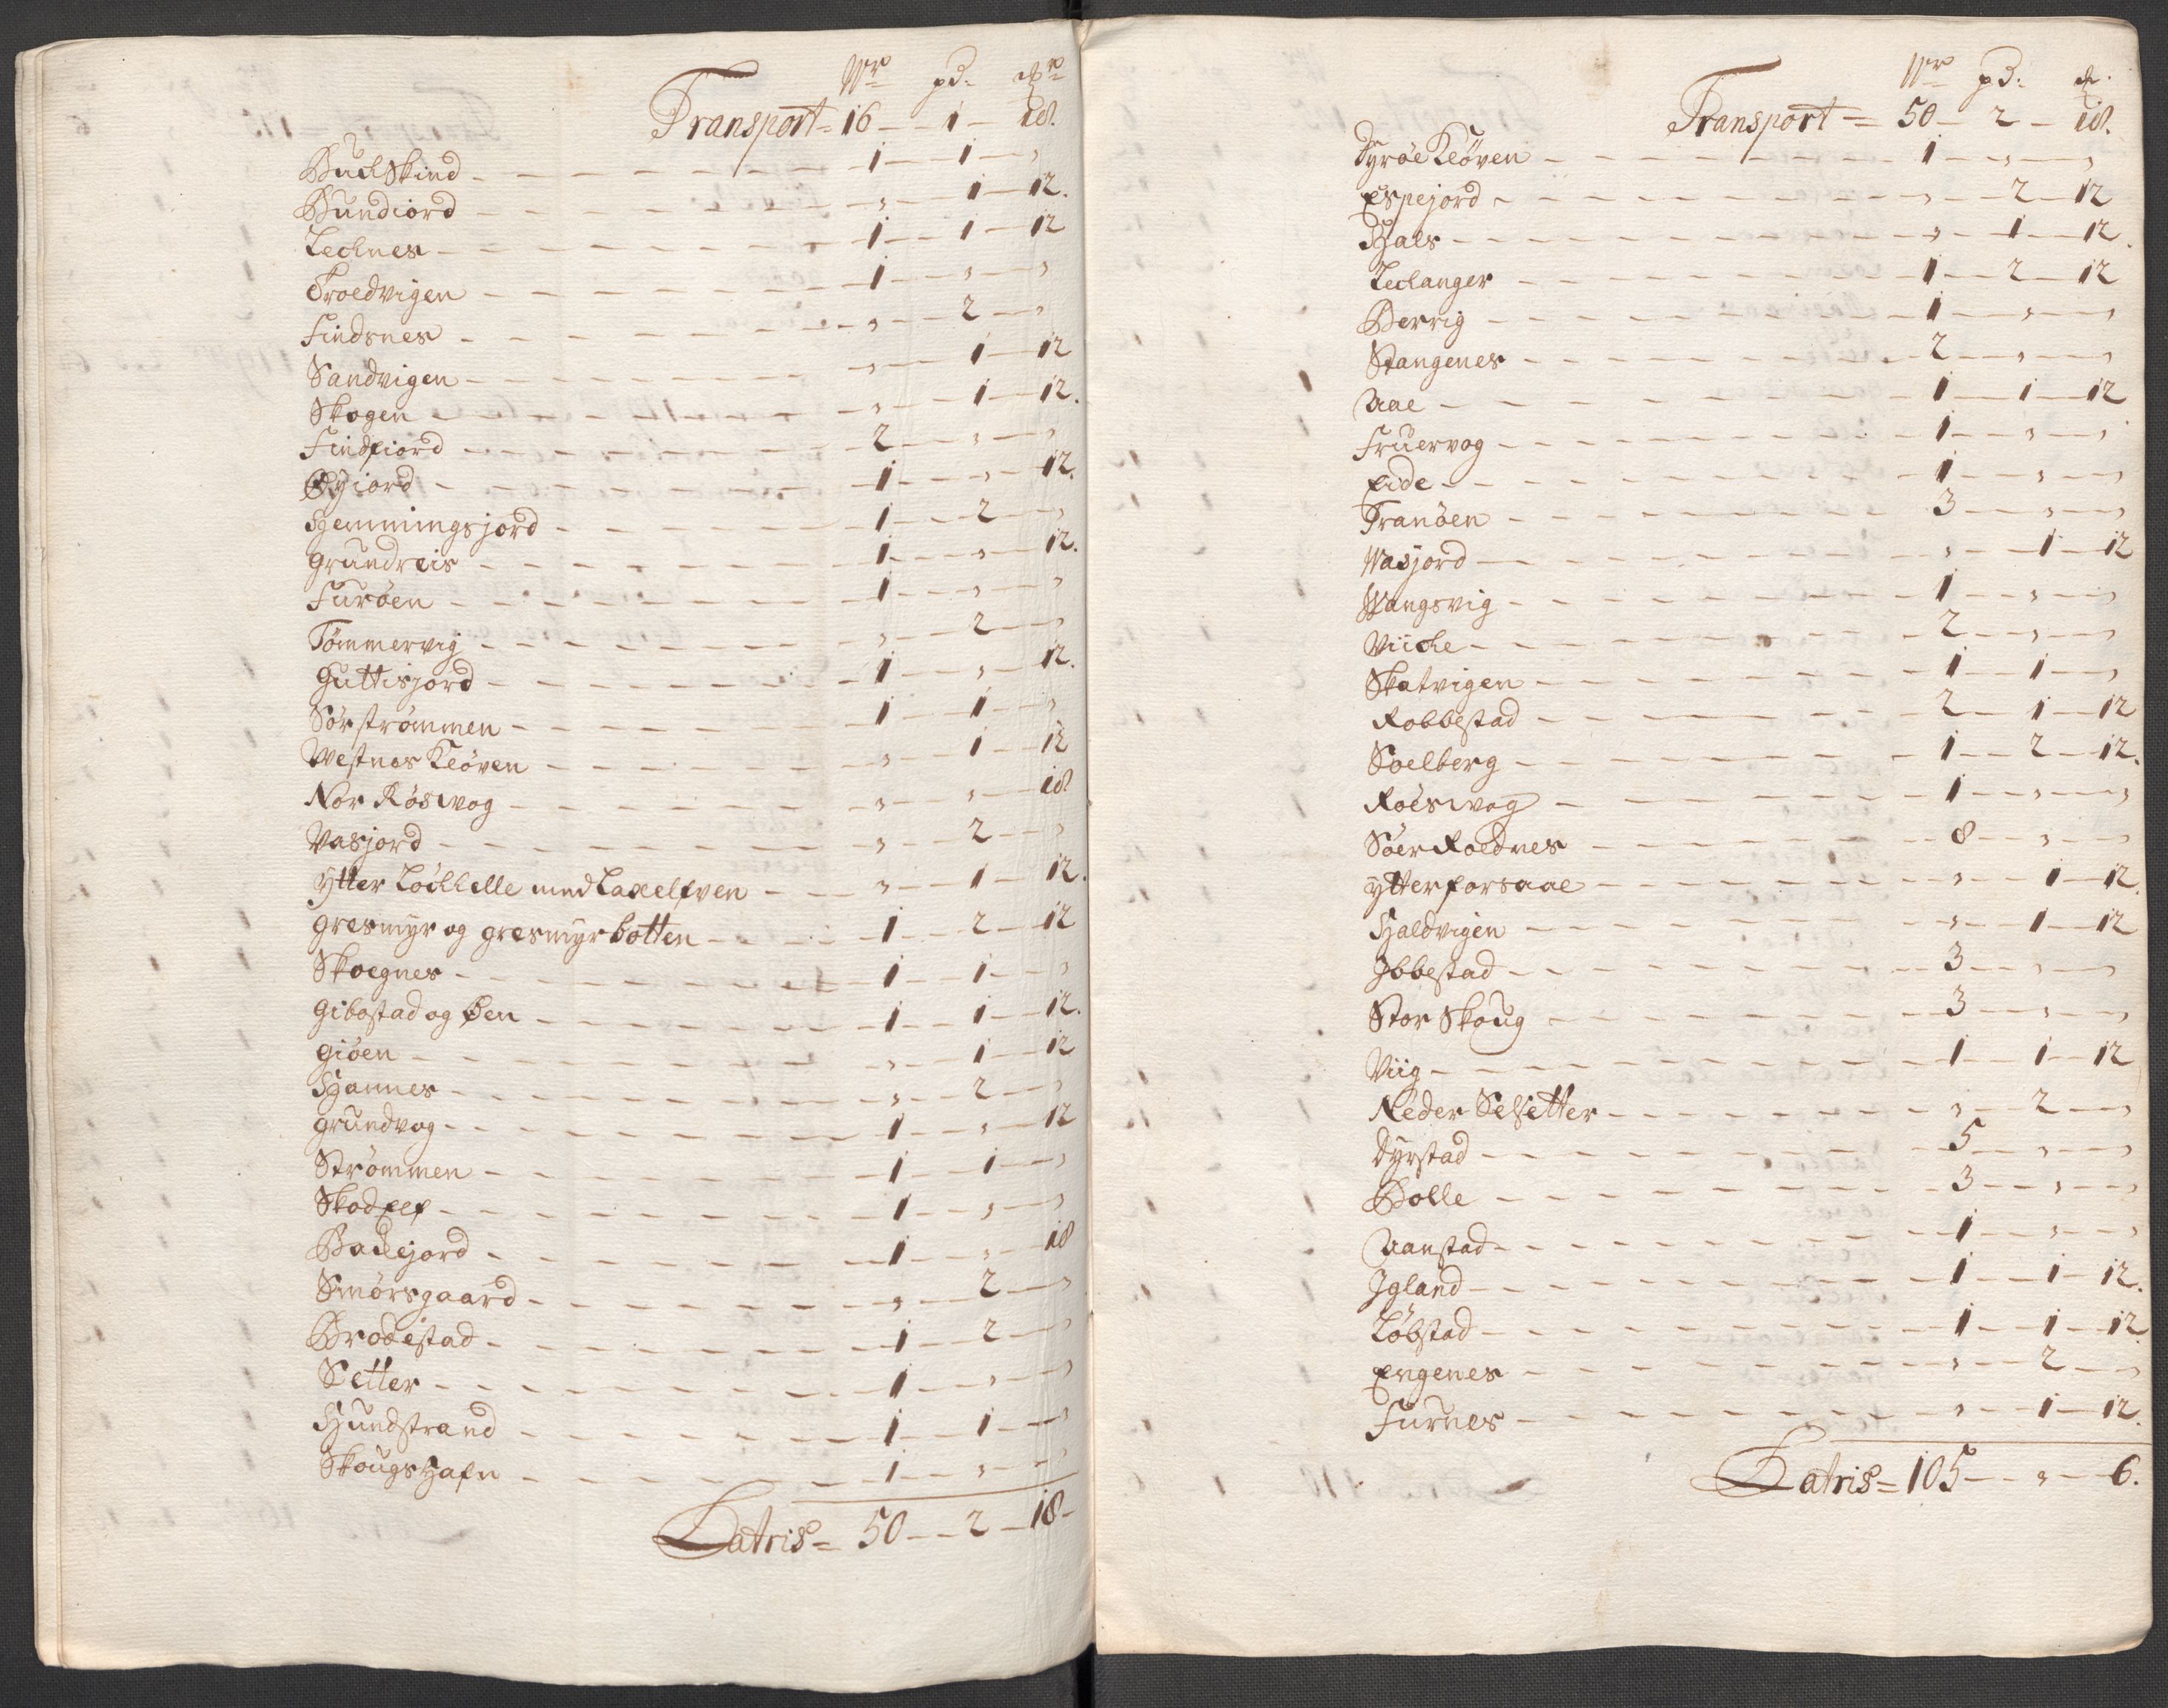 Wr pd: ℔r
Transport = 16 — 1 — 18.
Buckskind — 1 — 1 — "
Bundiord — " — 1 — 12.
Lecknes — 1 — 1 — 12
Troedvigen — 1 — " — "
Findsnes — " — 2 — "
Sandvigen — " — 1 — 12
Skogen — " — 1 — 12.
Findfiord — 2 — " — "
Øyiord — 1 — " — 12.
Hemmingsjord — 1 — 2 — "
Grundreis — 1 — " — 12.
Furøen — 1 — " — "
Tømmervig — " — 2 — "
Guttisjord — 1 — " — 12.
Sørstrømmen — 1 — 1 — "
Westnes Kløven — " — 1 — 12
Nor Røswog — " — " — 18
Vasjord — " — 2 — "
Ytter Løckelle med Laxelfven — " — 1 — 12.
Gresmyr og gresmyrbotten — 1 — 2 — 12
Skoegnes — 1 — 1 — "
Gibostad og Øen — 1 — 1 — 12.
Giøen — " — 1 — 12
Hannes — " — 2 — "
Grundvog — 1 — " — 12
Strømmen — 1 — 1 — "
Skodfef — 1 — " — "
Backejord — 1 — " — 18
Smørsgaard — " — 2 — "
Brodestad — 1 — 2 — "
Setter — 1 — " — "
Hundstrand — 1 — 1 — "
Skougshafn — 1 — " — "
Latris = 50 — 2 — 18 —
Wr pd: ℔.
Transport = 50 — 2 — 18.
Dyrøe Kløven — 1 — " — "
Espejord — " — 2 — 12
Hals — " — 1 — 12.
Leckanger — 1 — 2 — 12
Berrig — 1 — " — "
Stangenes — 2 — " — "
Aae — 1 — 1 — 12
Fruervog — 1 — " — "
Eide — 1 — " — "
Tranøen — 3 — " — "
Wasjord — " — 1 — 12
Wangsvig — 1 — " — "
Viiche — 2 — " — "
Skatvigen — 1 — 1 — "
Robbestad — 2 — 1 — 12
Soelberg — 1 — 2 — 12.
Roeswog — 1 — " — "
Søer Roednes — 8 — " — "
Ytterforsaae — " — 1 — 12.
Haldvigen — " — 1 — 12
Ibbestad — 3 — " — "
Stor Skoug — 3 — " — "
Viig — 1 — 1 — 12
Neder Selsetter — " — 2 — "
Dyrstad — 5 — " — "
Bolle — 3 — " — "
Aanstad — 1 — " — "
Igland — 1 — 1 — 12.
Løbstad — 1 — 1 — 12
Engenes — " — 2 — "
Furnes — " — 1 — 12.
Latris = 105 — " — 6.